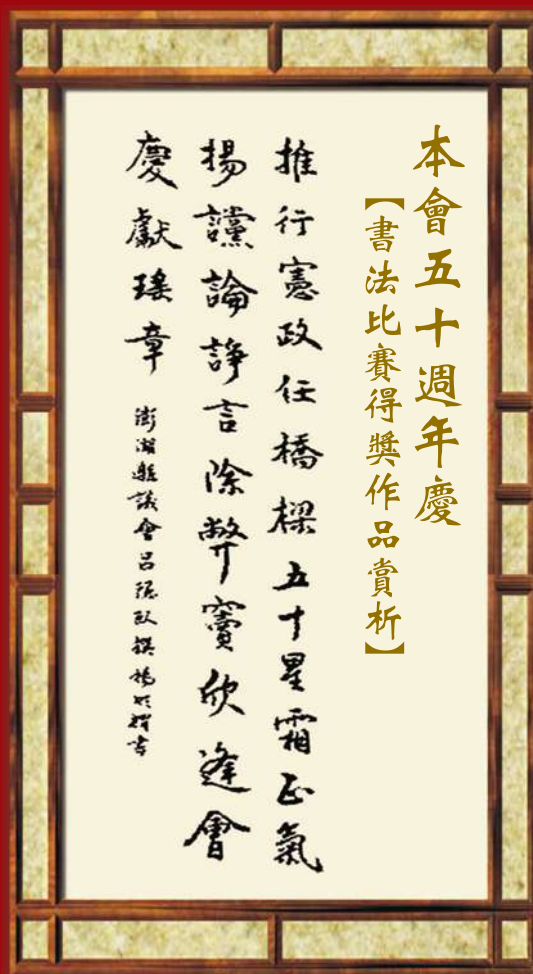 本會五十週年慶
【書法比賽得獎作品賞析】
推行憲政任橋樑五十星霜正氣
揚讜論諍言除弊竇欣逢會
慶獻瑤章
澎湖縣議會呂 撰楊 書